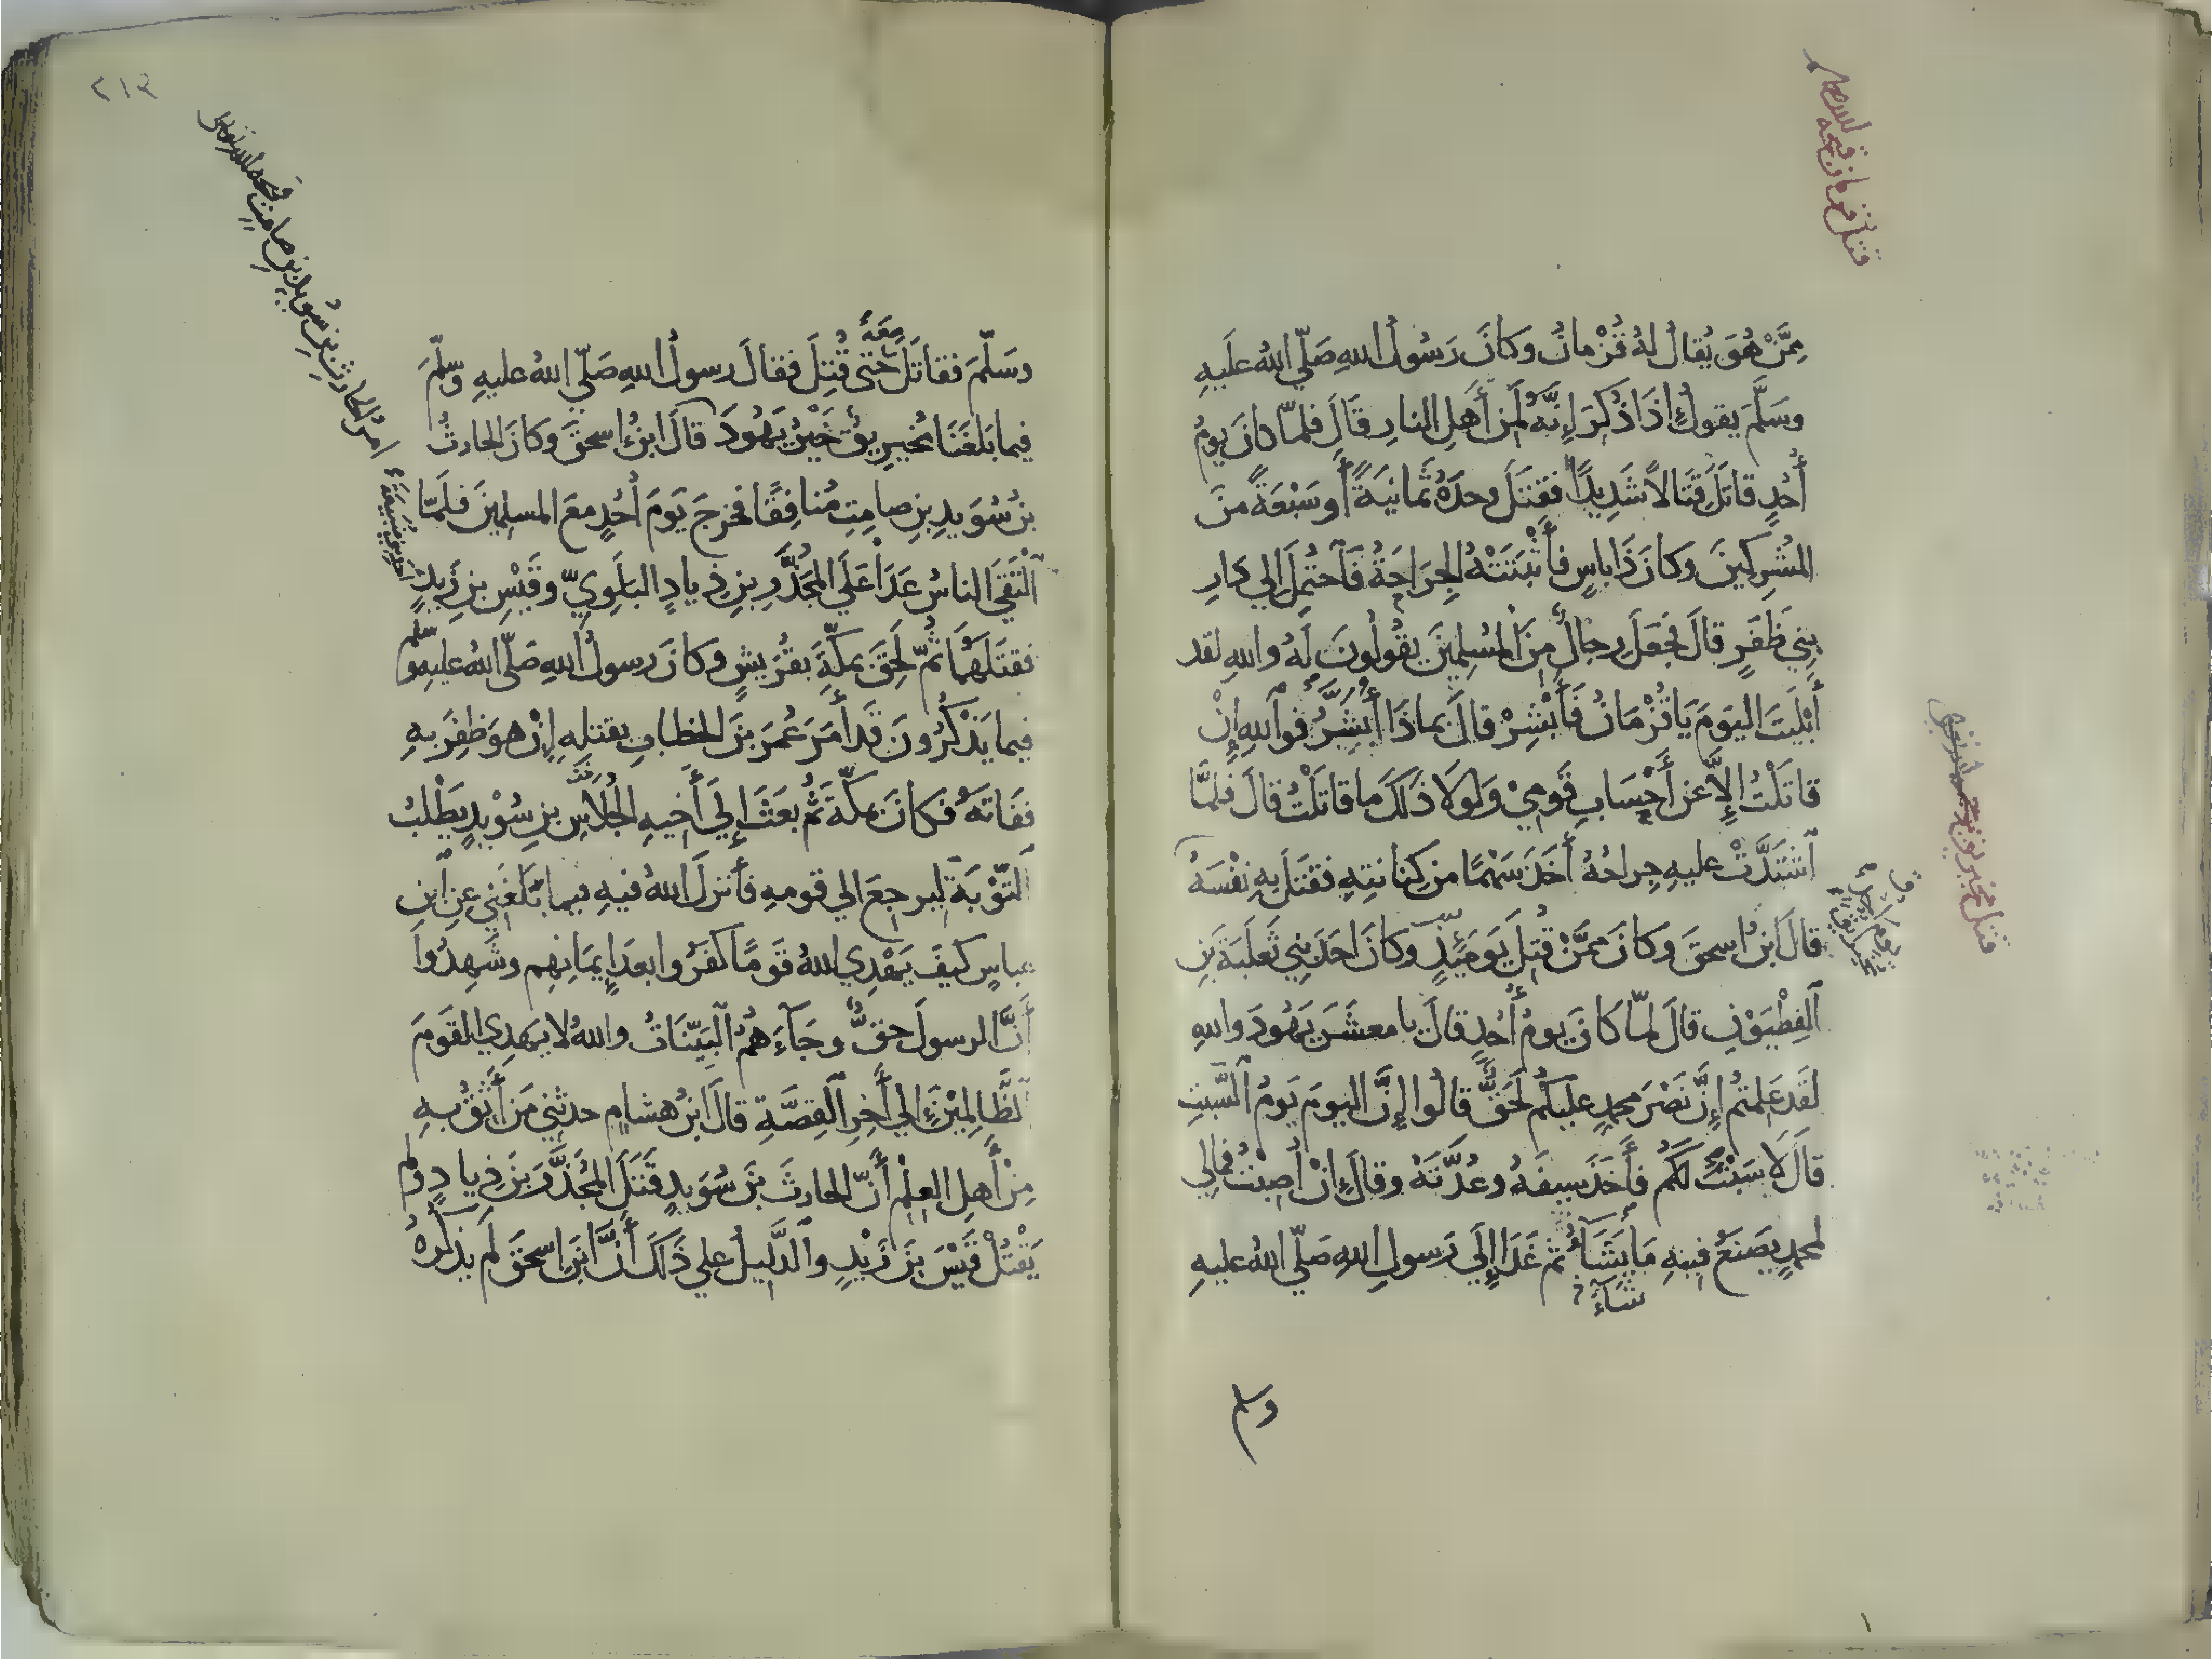 قتل قزمان قبحه الله
مِمَّنْ هُوَ يُقالُ لهُ قُزْمانُ وكانَ رَسُولُ اللهِ صَلّي اللهُ علَيهِ
وسَلَّمَ يقولُ إذَا ذُكِرَ لهُ إِنَّهُ لَمِن أَهلِ النارِ قَالَ فلمّا كانَ يومُ
أُحُدٍ قاتَلَ قِتَالاً شَدِيدًا فقتَلَ وحدَهُ ثَمانيَةً أو سَبْعَةً منَ
المُشرِكينَ وكانَ ذَا باسٍ فأَثْبَتَتْهُ الجِرَاحَةُ فَاحتُمِلَ إلي دارِ
بنِي ظَفَرٍ قالَ فجَعَلَ رجالٌ مِنَ المُسلِمِينَ يقُولُونَ لَهُ واللهِ لقد
أَبْلَيتَ اليَومَ يَا قُزْمَانُ فَأَبْشِرْ قالَ بماذَا أُبَشَّرُ فواللهِ إنْ
قاتَلْتُ إلاَّ عن أَحْسَابِ قَومِيْ وَلولَا ذلكَ ما قاتَلْتُ قالَ فلمَّا
اشْتَدَّتْ عليهِ جِراحُهُ أَخَذَ سَهْمًا من كِنانتِهِ فقتَلَ بهِ نفْسَهُ
قالَ ابنُ اسحقَ وكانَ ممَّنْ قُتِلَ يَومَئِذٍ وكانَ احدَ بنِي ثَعلَبَةَ بنِ
الفِطْيَوْنِ قالَ لمّا كانَ يومُ أُحُدٍ قالَ يا معشَرَ يَهُودَ واللهِ
لقَد عَلِمتُم إنَّ نَصْرَ محمدٍ عليكُم لَحَقٌّ قالُوا إنَّ اليومَ يَومُ السَّبتِ
قالَ لَا سَبْتَ لَكُم فأَخَذَ سيفَهُ وعُدَّتَهُ وقالَ إنْ اُصِبْتُ فمالِي
لمحمدٍ يصَنعُ فيهِ مَا يَشَآءُ ثم غَدَا إلَي رَسولِ اللهِ صَلّي اللهُ عليهِ
شآءَ
وسلم
قتل مخيريق
٢١٣
امرُ الحارثِ بنِ سُويدِ بنِ صامِتٍ
وسَلّمَ فقاتَلَ معَهُ حَتّى قُتِلَ فقالَ رسولُ اللهِ صَلّي اللهُ عليهِ وسَلّمَ
فيما بَلغَنَا مُخَيرِيقُ خَيْرُ يَهُودَ قالَ ابنُ اسحقَ وكانَ الحارثُ
بنُ سُوَيدِ بنِ صامِتٍ مُنافِقًا فخرجَ يَومَ أُحُدٍ معَ المسلمِينَ فلَمّا
الْتَقَي الناسُ عَدَا عَلَي المُجَذَّرِ بنِ ذِيادٍ البَلَوِيّ وقَيْسِ بنِ زَيدٍ
فقتَلَهُمَا ثمّ لَحِقَ بمكّةَ بقُرَيشٍ وكانَ رسولُ اللهِ صَلّي اللهُ عليهِ وسلم
فيما يَذْكُرُونَ قَد أَمَرَ عُمَرَ بنَ الخطابِ بقتلهِ إنْ هوَ ظفِرَ بهِ
ففَاتَهُ فكانَ بمكّةَ ثُمَّ بعَثَ إلَي أَخيهِ الجُلاسِ بنِ سُوْيدٍ يَطْلبُ
التّوْبَةَ ليرجعَ الي قومهِ فأَنزلَ اللهُ فيهِ فيما بَلَغَنِي عنِ ابنِ
عباسٍ كيفَ يَهْدِي اللهُ قَومًا كفَرُوا بعدَ إيمَانِهِم وشَهِدُوا
أَنَّ الرسولَ حقٌّ وجَآءَهُمُ البَيّنَاتُ واللهُ لا يهدِي القَومَ
الظَّالِمِيْنَ إلي أَخرِ القِصَّةِ قالَ ابنُ هشامٍ حدثنِي مَن أَثِقُ بهِ
مِنْ أَهلِ العِلْمِ أَنّ الحارثَ بنَ سُوَيدٍ قَتَلَ المُجَذَّرَ بنَ ذِيادٍ ولم
يَقْتُلْ قَيْسَ بنَ زَيْدٍ والدَّليلُ علي ذَلكَ أَنَّ ابنَ اسحقَ لم يذكرهُ